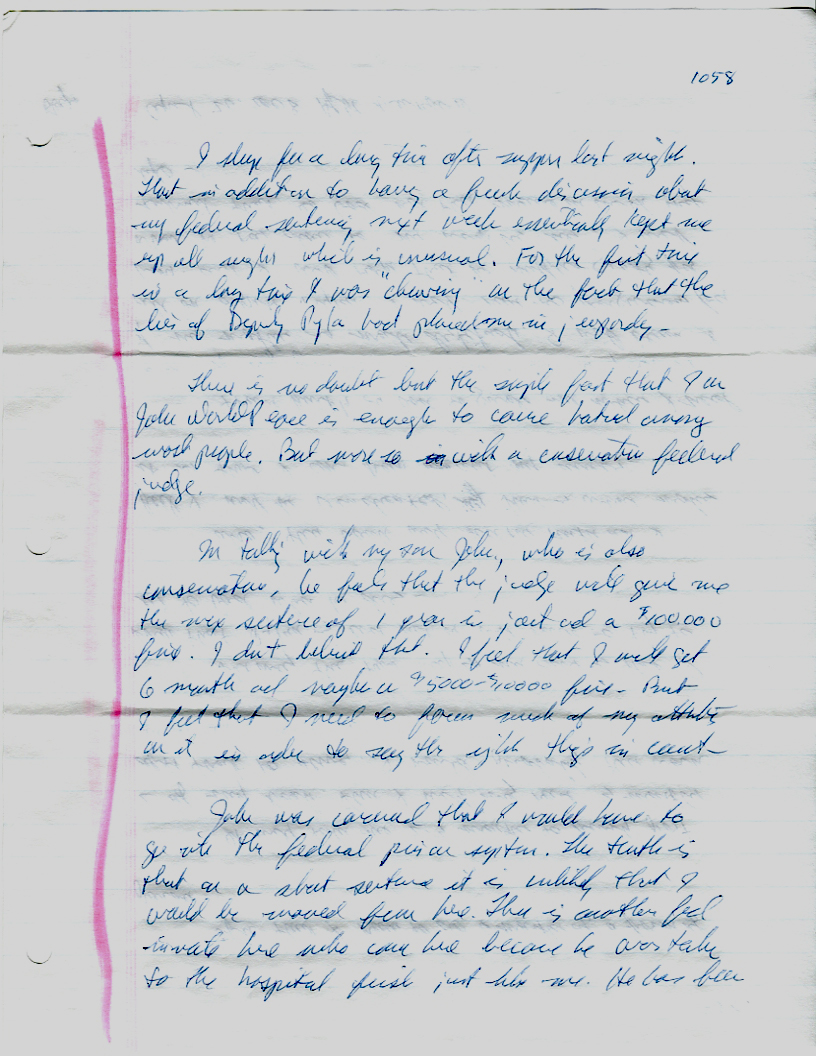 1058
I sleep for a long time after supper last night.
That in addition to having a frank discussion about
my federal sentencing next week essentially kept me
up all night which is unusual. For the first time
in a long time I was "chewing" on the fact that the
lies of Deputy had placed me in jeopardy -
There is no doubt but the single fact that I am
John is enough to cause hatred among
most people. But more so with a conservative federal
judge.
In talking with my son John, who is also
conservative, he feels that the judge will give me
the max sentence of 1 year in jail and a $100,000
fine. I don't believe that. I feel that I will get
6 months and maybe a $5000-$10000 fine - But
I feel that I need to focus much of my attention
on it in order to say the right things in court -
John was concerned that I would have to
go into the federal prison system. The truth is
that on a short sentence it is unlikely that I
would be moved from here. There is another fed
inmate here who came here because he was taken
to the hospital first just like me. He has been